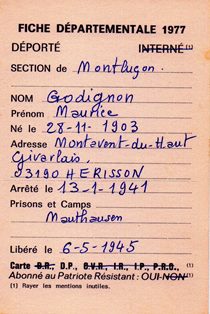 FICHE DÉPARTEMENTALE 1977
DÉPORTÉ INTERNÉ (1)
SECTION de Montluçon.
NOM Godignon
Prénom Maurice
Né le 28-11-1903
Adresse Montavent-du-Haut
Givarlais.
03190 HERISSON
Arrêté le 13-1-1941
Prisons et Camps
Mauthausen
Libéré le 6-5-1945
Carte D.R., D.P., C.V.R., I.R., I.P., P.R.O., (1)
Abonné au Patriote Résistant : OUI-NON (1)
(1) Rayer les mentions inutiles.